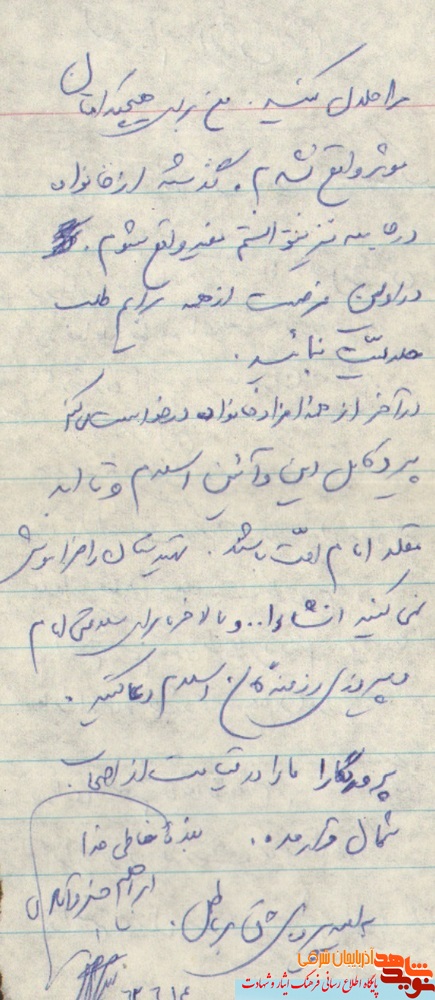 مرا حلال کنید. من برای هیچکدامتان
موثر واقع نشدم. گذشته از خانواده
در جامعه نیز نتوانستم مفید واقع شوم.
در اولین فرصت از همه برایم طلب
حلالیّت نمائید.
در آخر از همه افراد خانواده درخواست میکنم
پیرو کامل دین و آئین اسلام و تا ابد
مقلد امام امّت باشند. شهیدتان را فراموش
نمی کنید انشاءا... و بالاخره برای سلامتی امام
و پیروزی رزمندگان اسلام دعا کنید.
پروردگارا ما را در قیامت از اصحاب
شمال قرار مده. بنده خاطی خدا
ابراهیم
به امید پیروزی حق بر باطل.
نوید شاهد آذربایجان شرقی
پایگاه اطلاع رسانی فرهنگ ایثار و شهادت